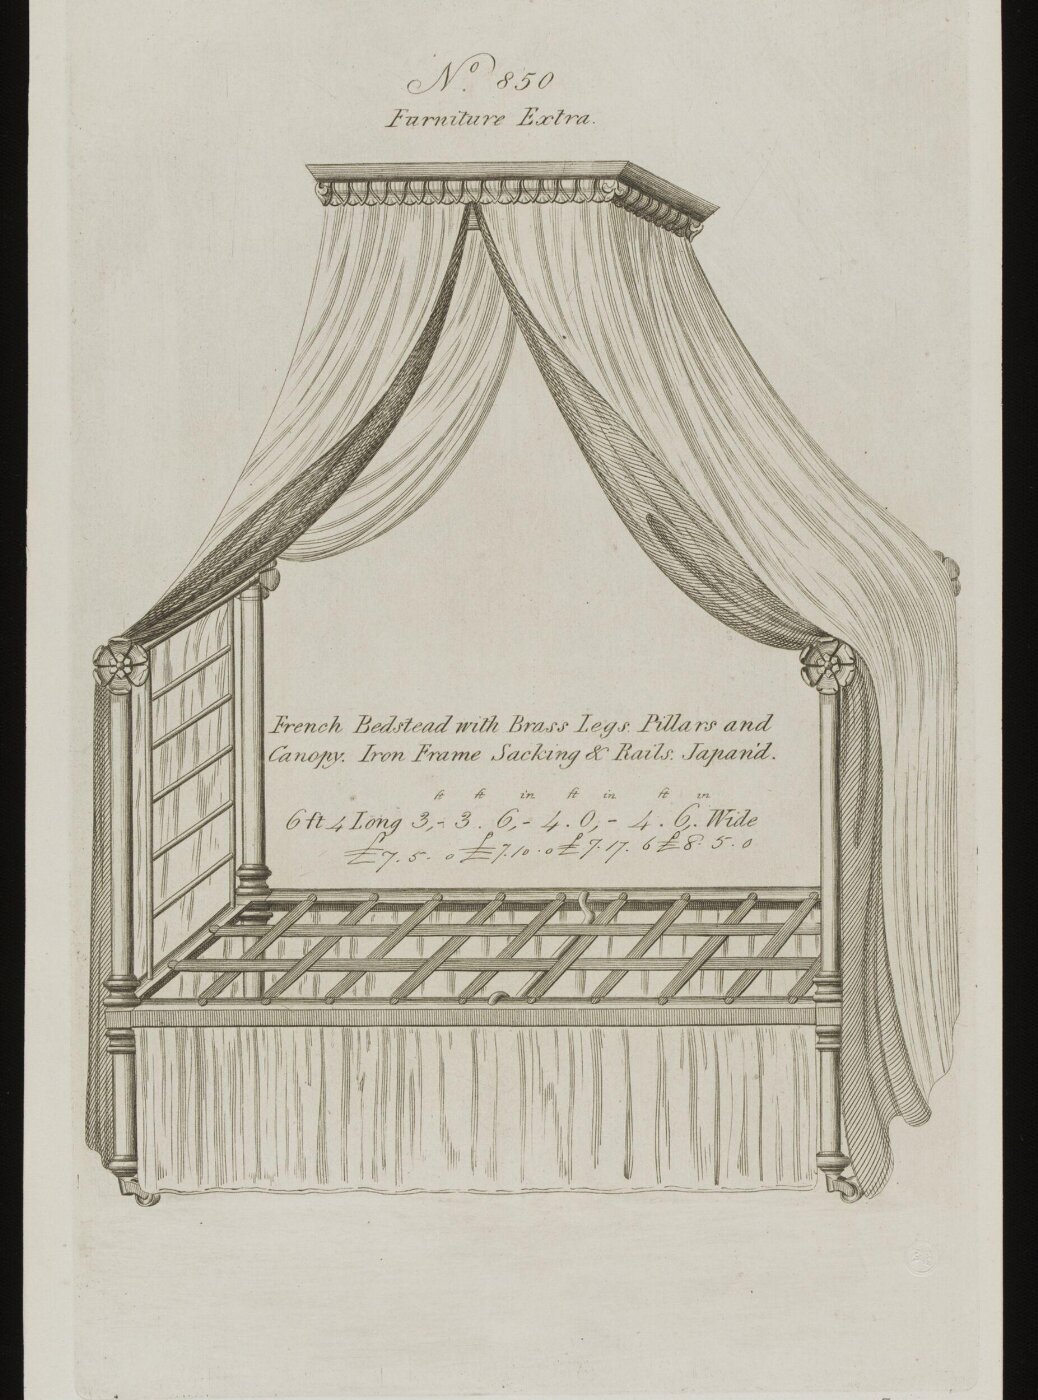 No. 850
Furniture Extra.
French Bedstead with Brass Legs. Pillars and
Canopy. Iron Frame Sacking & Rails. Japan'd.
ft ft in ft in ft in
6 ft 4 Long 3,- 3. 6,- 4. 0,- 4. 6. Wide
£7. 5. 0 £7. 10. 0 £7. 17. 6 £8. 5. 0